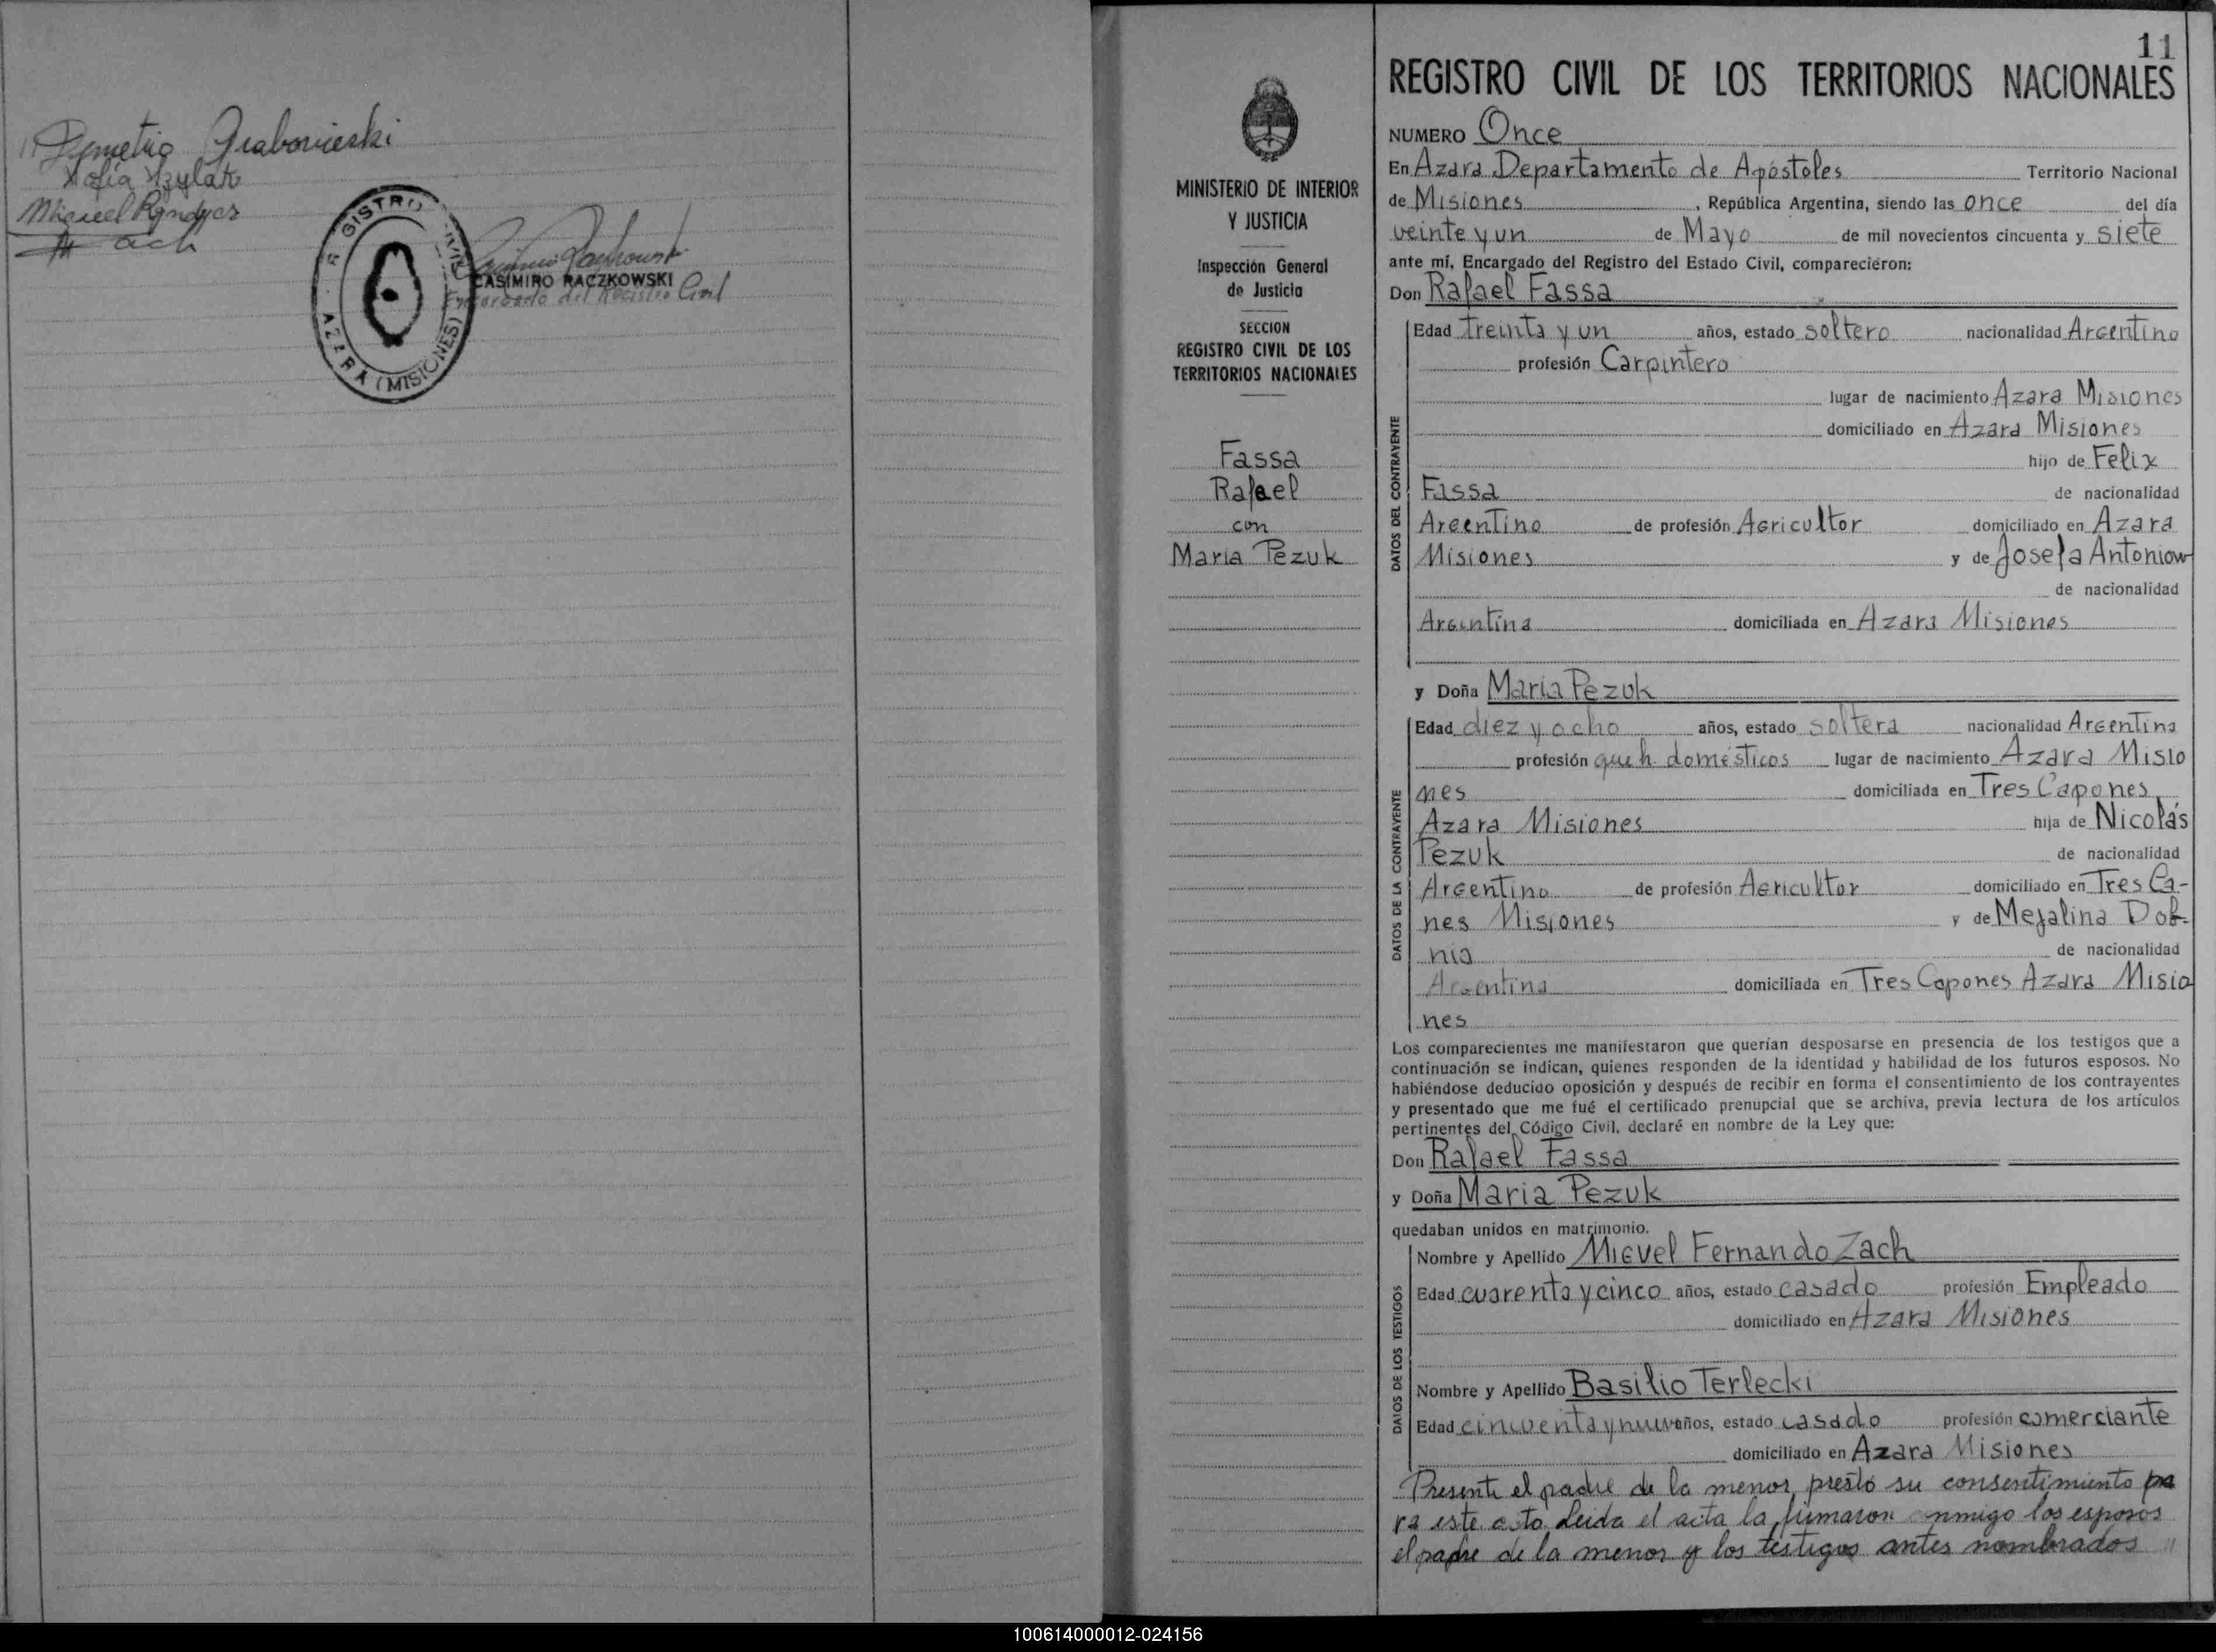 Demetrio Grabovieski
Sofia Szylak
Miguel
ach
R GISTRO CIVIL
AZARA (MISIONES)
CASIMIRO RACZKOWSKI
Encargado del Registro Civil
11
REGISTRO CIVIL DE LOS TERRITORIOS NACIONALES
MINISTERIO DE INTERIOR
Y JUSTICIA
Inspección General
de Justicia
SECCION
REGISTRO CIVIL DE LOS
TERRITORIOS NACIONALES
Fassa
Rafael
con
Maria Pezuk
NUMERO Once
En Azara Departamento de Apóstoles Territorio Nacional
de Misiones, República Argentina, siendo las once del día
veinte y un de Mayo de mil novecientos cincuenta y siete
ante mí, Encargado del Registro del Estado Civil, comparecieron:
Don Rafael Fassa
DATOS DEL CONTRAYENTE
Edad treinta y un años, estado soltero nacionalidad Argentino
profesión Carpintero
lugar de nacimiento Azara Misiones
domiciliado en Azara Misiones
hijo de Felix
Fassa de nacionalidad
Argentino de profesión Agricultor domiciliado en Azara
Misiones y de Josefa Antoniow
de nacionalidad
Argentina domiciliada en Azara Misiones
y Doña Maria Pezuk
DATOS DE LA CONTRAYENTE
Edad diez y ocho años, estado soltera nacionalidad Argentina
profesión queh. domésticos lugar de nacimiento Azara Misio
nes domiciliada en Tres Capones
Azara Misiones hija de Nicolás
Pezuk de nacionalidad
Argentino de profesión Agricultor domiciliado en Tres Ca-
nes Misiones y de Mejalina Dob-
nia de nacionalidad
Argentina domiciliada en Tres Capones Azara Misio
nes
Los comparecientes me manifestaron que querían desposarse en presencia de los testigos que a
continuación se indican, quienes responden de la identidad y habilidad de los futuros esposos. No
habiéndose deducido oposición y después de recibir en forma el consentimiento de los contrayentes
y presentado que me fué el certificado prenupcial que se archiva, previa lectura de los artículos
pertinentes del Código Civil, declaré en nombre de la Ley que:
Don Rafael Fassa
y Doña Maria Pezuk
quedaban unidos en matrimonio.
DATOS DE LOS TESTIGOS
Nombre y Apellido Miguel Fernando Zach
Edad cuarenta y cinco años, estado casado profesión Empleado
domiciliado en Azara Misiones
Nombre y Apellido Basilio Terlecki
Edad cincuenta y nueve años, estado casado profesión comerciante
domiciliado en Azara Misiones
Presente el padre de la menor prestó su consentimiento pa
ra este acto. Leida el acta la firmaron conmigo los esposos
el padre de la menor y los testigos antes nombrados "
100614000012-024156